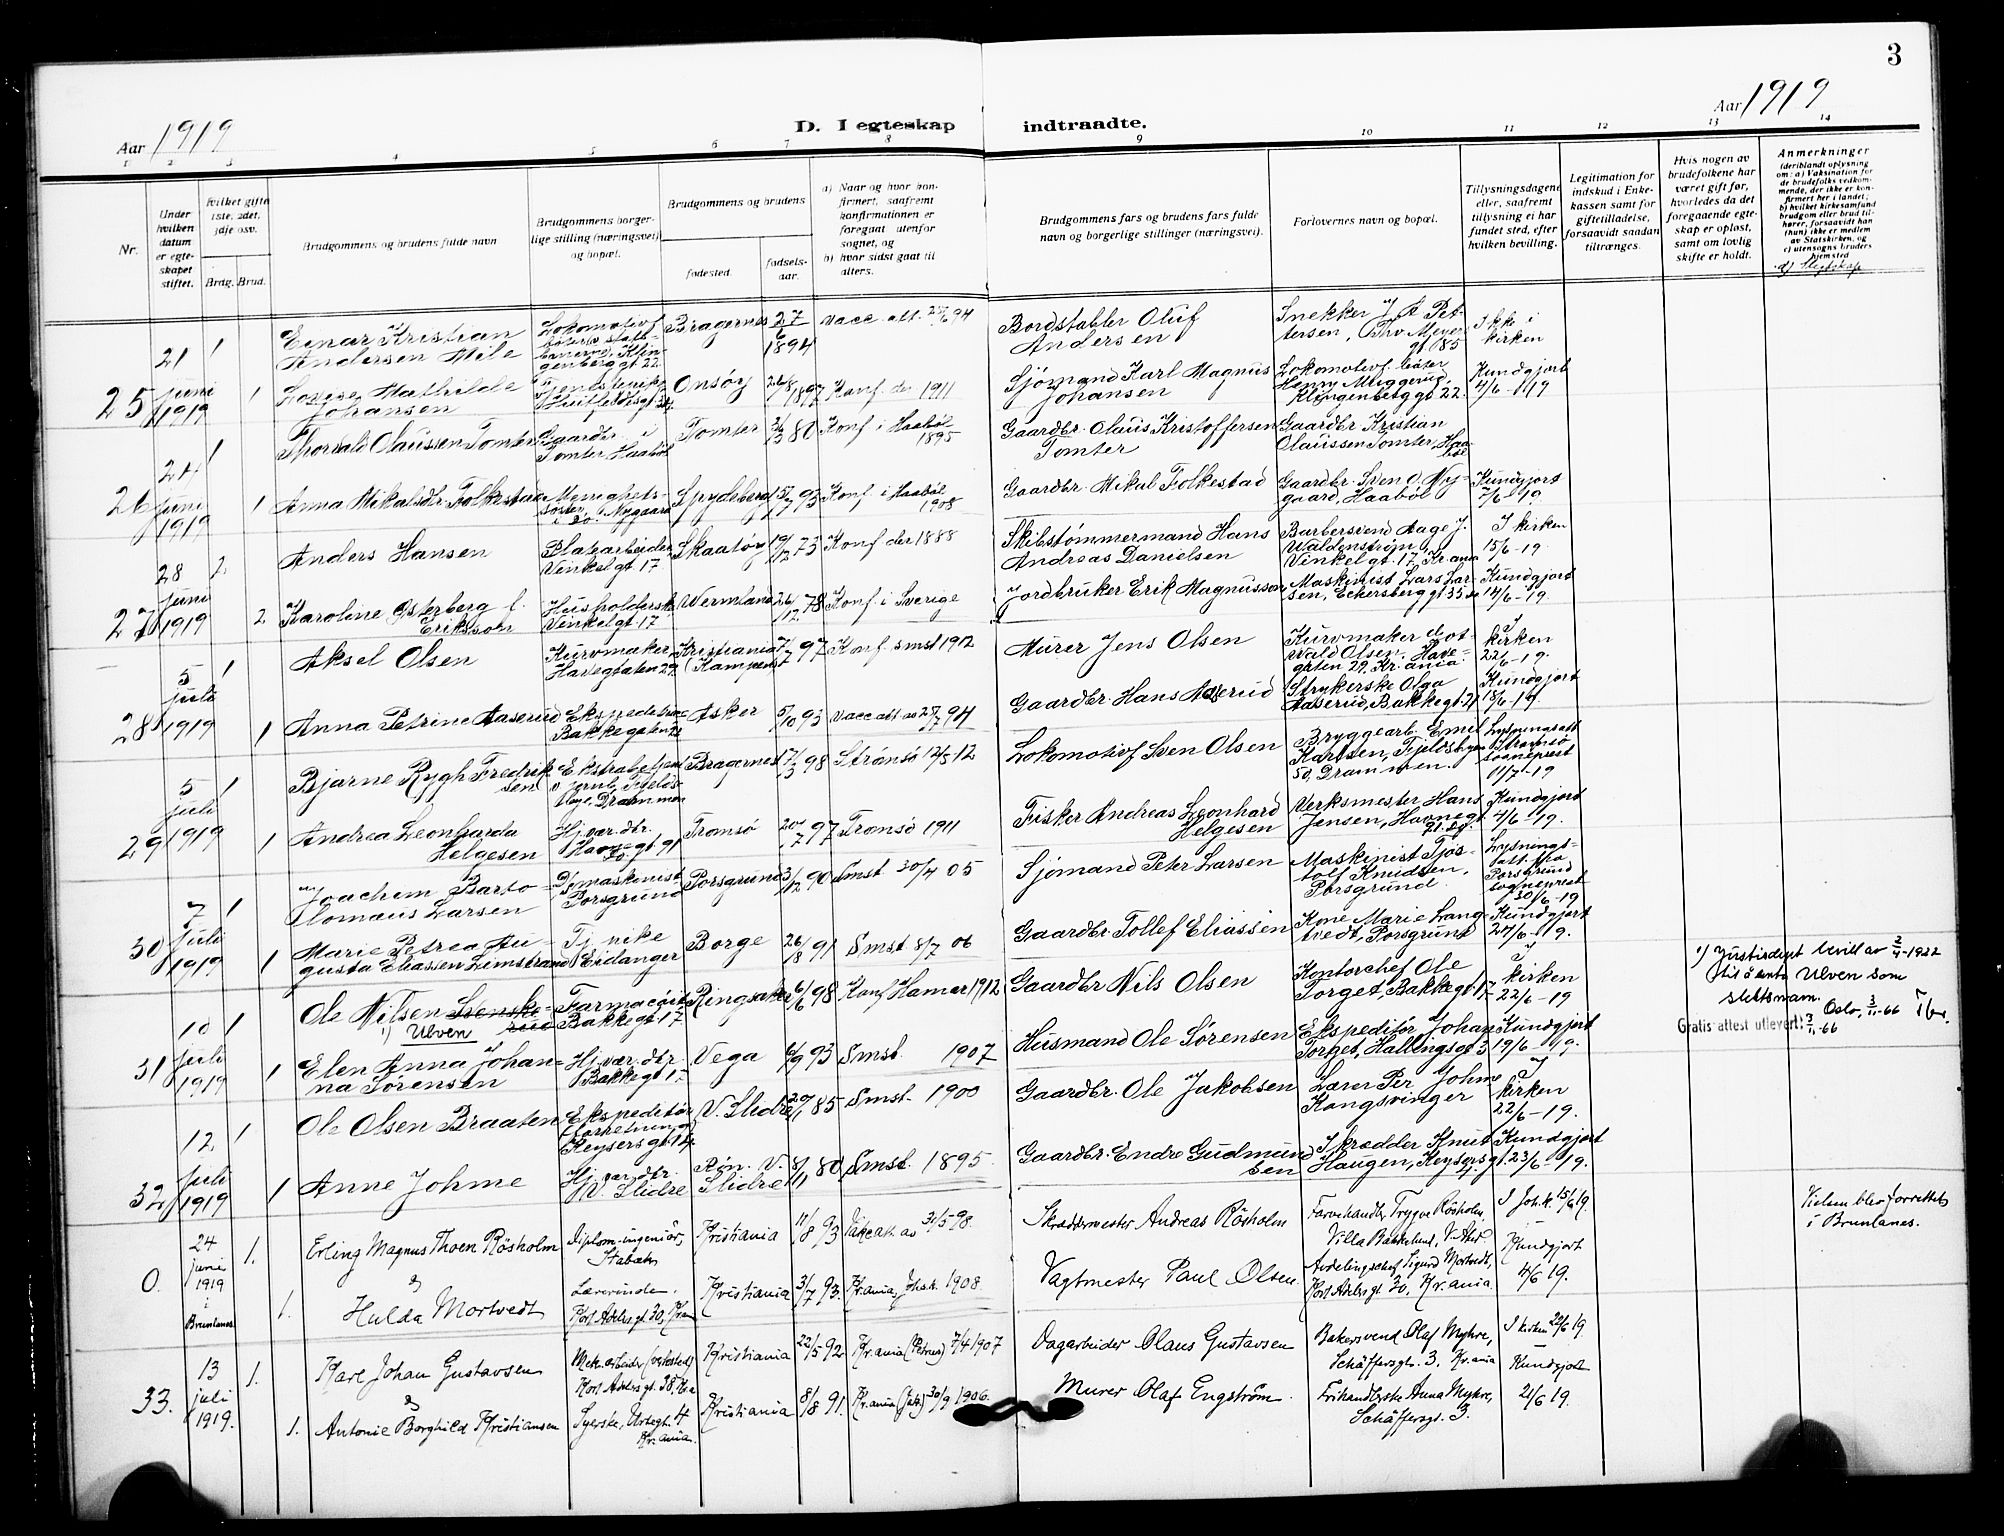 3
Aar 1919
D. I egteskap indtraadte.
Aar 1919
1 2 3 4 5 6 7 8 9 10 11 12 13 14
Nr.
Under hvilken datum er egteskapet stiftet.
Hvilket gifte 1ste, 2det, 3dje osv.
Brdg. Brud.
Brudgommens og brudens fulde navn
Brudgommens borgerlige stilling (næringsvei) og bopæl.
Brudgommens og brudens
fødested.
fødselsaar.
a) Naar og hvor konfirmert, saafremt konfirmationen er foregaat utenfor sognet, og
b) hvor sidst gaat til alters.
Brudgommens fars og brudens fars fulde navn og borgerlige stillinger (næringsvei).
Forlovernes navn og bopæl.
Tillysningsdagene eller, saafremt tillysning ei har fundet sted, efter hvilken bevilling.
Legitimation for indskud i Enkekassen samt for gifteitilladelse, forsaavidt saadan tiltrænges.
Hvis nogen av brudefolkene har været gift før, hvorledes da det foregaaende egteskap er opløst, samt om lovlig skifte er holdt.
Anmerkninger
(deriblandt oplysning om: a) Vaksination for de brudefolks vedkommende, der ikke er konfirmert her i landet; b) hvilket kirkesamfund brudgom eller brud tilhører, forsaavidt han (hun) ikke er medlem av Statskirken, og c) utensogns bruders hjemsted
d) Slegtskap
25 21 juni 1919 1 Einar Kristian Andersen Mile Bragernes 27/6 1894 Vacc. att. Bordstabler Oluf Andersen Snekker J. A. Pettersen, Thv Meyers gt 85 Ikke i kirken
1 Lovise Mathilde Johansen Tjenestepike Huitfeldtsgt Onsøy 26/8 1897 Konf. der 1911 Sjømand Karl Magnus Johansen Lokomotivf. Henry Muggerud, Klingenberggt 22. Kundgjort 4/6-1919
26 24 juni 1919 1 Thorvald Olaussen Tomter Gaardbr. i Tomter Haabøl Tomter 80 Konf. i Haabøl 1895 Gaardbr. Olaus Kristoffersen Tomter Gaardbr Kristian Olaussen Tomter,
1 Anna Mikalsdr. Folkestad Menighetssøster, Nygaard Spydeberg 93 Konf. i Haabøl 1908 Gaardbr. Mikal Folkestad Gaardbr. Sven O. Nygaard, Haabøl Kundgjort 7/6-19.
27 28 juni 1919 2 Anders Hansen Platearbeider Vinkelgt. 17 Skaatøy 73 Konf der 1888 Skibstømmermand Hans Andreas Danielsen Barbersvend Aage J. Waldenstrøm, Vinkelgt. 17, Kr.ania I kirken 15/6-19.
2 Karoline Østerberg f. Eriksson Husholderske Vinkelgt. 17 Wermland 78 Konf. i Sverige Jordbruker Erik Magnusson Maskinist Lars Larsen, Eckersberggt 35 Kundgjort 14/6-19.
28 5 juli 1919 1 Aksel Olsen Kurvmaker Havegaten 29. Kristiania (Kampen) 97 Konf. smst 1912 Murer Jens Olsen Kurvmaker Olsen, Havegaten 29, Kr.ania. I kirken 22/6-19.
1 Anna Petrine Aaserud Bakkegaten Asker 5/10 93 Vacc att av Gaardbr. Hans Aaserud Strykerske Olga Aaserud, Bakkegt. 21 Kundgjort 18/6-19.
29 5 juli 1919 1 Bjarne Rygh Fredriksen Drammen Bragernes 17/3 98 Strømsø Lokomotivf Sven Olsen Bryggearb. Emil Karlsen, Fjeldsbyen 50, Drammen. Strømsø sogneprest 11/7-19
1 Andrea Leonharda Helgesen Hj. vær. dtr. Tromsø 20/7 97 Tromsø 1911 Fisker Andreas Leonhard Helgesen Verksmester Hans Jensen, Kundgjort 4/6-19.
30 7 juli 1919 1 Joachim Bartolomæus Larsen maskinist Porsgrund Porsgrund 3/12 90 Smst 30/4 05 Sjømand Peter Larsen Maskinist Knudsen, Porsgrund. Lysningsatt. fra Porsgrund sogneprest 30/6-19
1 Marie Petrea Augusta Eliassen Limstrand Tj. pike Eidanger Borge 26/8 91 Smst 8/7 06 Gaardbr. Tollef Eliassen Kone Marie Langtvedt, Porsgrund Kundgjort 24/6-19.
31 10 juli 1919 1 Ole Nilsen Svenskerud
1) Ulven
Farmacøit Bakkegt 17 Ringsaker 6/6 98 Konf Hamar 1912 Gaardbr Nils Olsen Kontorchef Ole Torget, Bakkegt. 17 I kirken 22/6-19
1) Justisdept bevill av 2/4-1922 til å anta Ulven som slektsnavn.
Oslo, 3/11-66
Gratis attest utlevert 3/11-66
1 Elen Anna Johanna Sørensen Hj. vær. dtr. Bakkegt. 17 Vega 6/9 93 Smst. 1907 Husmand Ole Sørensen Ekspeditør Johan Torget, Hallingsgt 3 Kundgjort 19/6-19.
32 12 juli 1919 1 Ole Olsen Braaten Ekspeditør (forretning) Keysersgt. 14 V. Slidre 85 Smst. 1900 Gaardbr. Ole Jakobsen Lærer Per Johme Kongsvinger I kirken 22/6-19.
1 Anne Johme Hj. vær. dtr. V. Slidre Røn. V. Slidre 8/11 80 Smst. 1895. Gaardbr. Endre Gudmundsen Skrædder Knut Haugen, Keysersgt. Kundgjort 23/6-19.
0. 24 juni 1919 i Brunlanes 1. Erling Magnus Thoen Røsholm Diplom-ingeniør, Stabæk Kristiania 11/8 93 Dåpsatt. av 31/5 98. Skræddermester Andreas Røsholm Farvehandler Trygve Røsholm Villa Bakkelund, V. Aker. I Joh.k. 15/6 19. Vielsen blev forrettet i Brunlanes.
&
1. Hulda Mortvedt Lærerinde. Kort Adelers gt. 30, Kr.ania Kristiania 31/7 93. Kr.ania, Joh.k. 1908. Vagtmester Paul Olsen. Avdelingschef Sigurd Mortvedt, Kort Adelers gt. 30, Kr.ania. Kundgjort 4/6 19.
33. 13 juli 1919. 1. Karl Johan Gustavsen Mek. arbeider (verksted) Kort Adelers gt. 38, Kr.a Kristiania 22/5 92. Kr.ania (Petrus) 7/4 1907 Dagarbeider Olaus Gustavsen Bakersvend Olaf Myhre, Schäffersgt. 3. Kr.ania I kirken 22/6 19.
&
1. Antonie Borghild Kristiansen Syerske, Urtegt. 4 Kr.ania. Kristiania 8/8 91. Kr.ania (Jak.) 30/9 1906. Murer Olaf Engstrøm. Frihandlerske Anna Myhre, Schäffersgt. 3. Kundgjort 21/6 19.